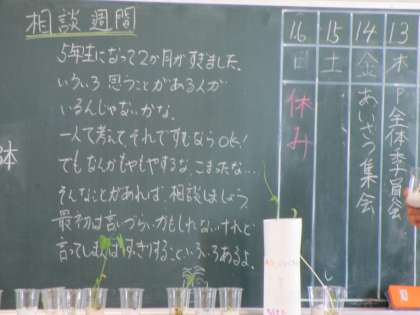 相談週間
5年生になって2か月がすぎました。
いろいろ思うことがある人が
いるんじゃないかな。
一人で考えて、それですむならOK!
でもなんかもやもやするな、こまったな…
そんなことがあれば、相談しましょう。
最初は言いづらいかもしれないけれど
言ってしまえばすっきりすることいろいろあるよ。
13 木 P全体委員会
14 金 あいさつ集会
15 土
16 日 休み
体